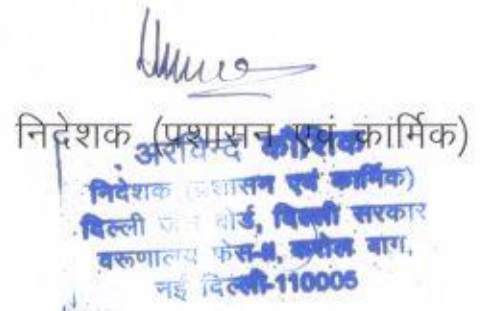 निदेशक (प्रशासन एवं कार्मिक)
अरविन्द कौशिक
निदेशक (प्रशासन एवं कार्मिक)
दिल्ली जल बोर्ड, दिल्ली सरकार
वरूणालय फेस-II, करोल बाग,
नई दिल्ली-110005